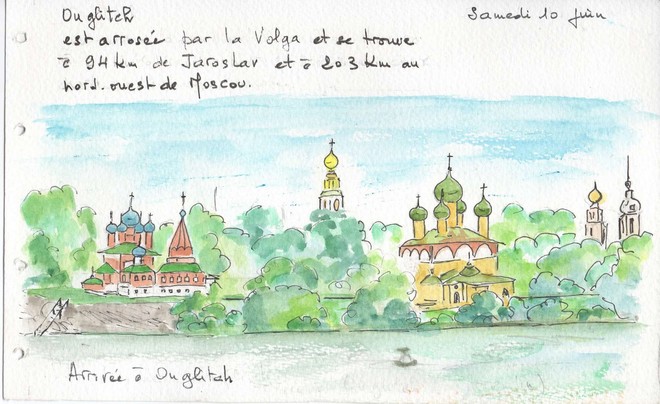 Ouglitch
Samedi 10 juin
est arrosée par la Volga et se trouve
à 94 km de Jaroslav et à 203 km au
nord-ouest de Moscou.
Arrivée à Ouglitch